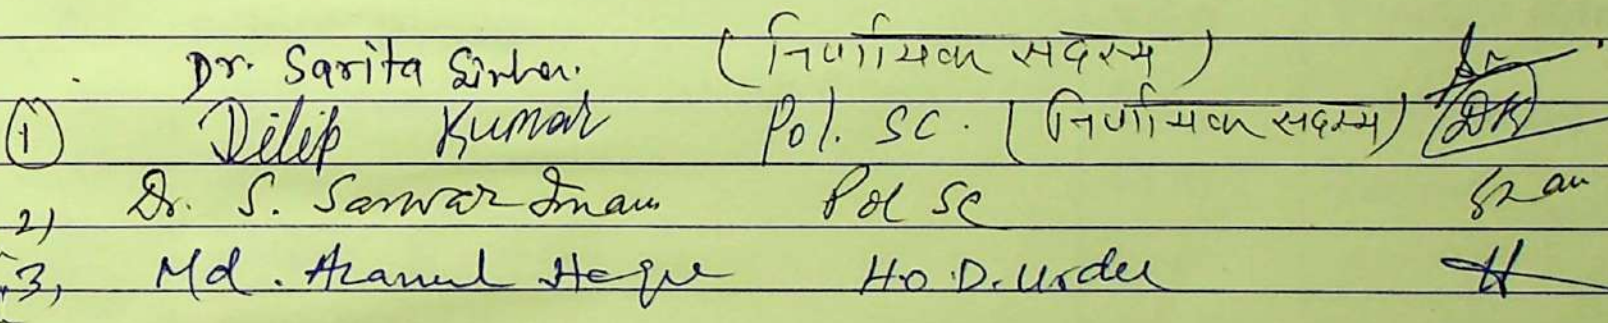 Dr. Sarita Sinha. (निर्णायक सदस्य)
① Dilip Kumar Pol. SC. (निर्णायक सदस्य) DK
2) Dr. S. Sarwar Imam Pol Sc
3, Md. Azamul Haque H.O.D. Urdu